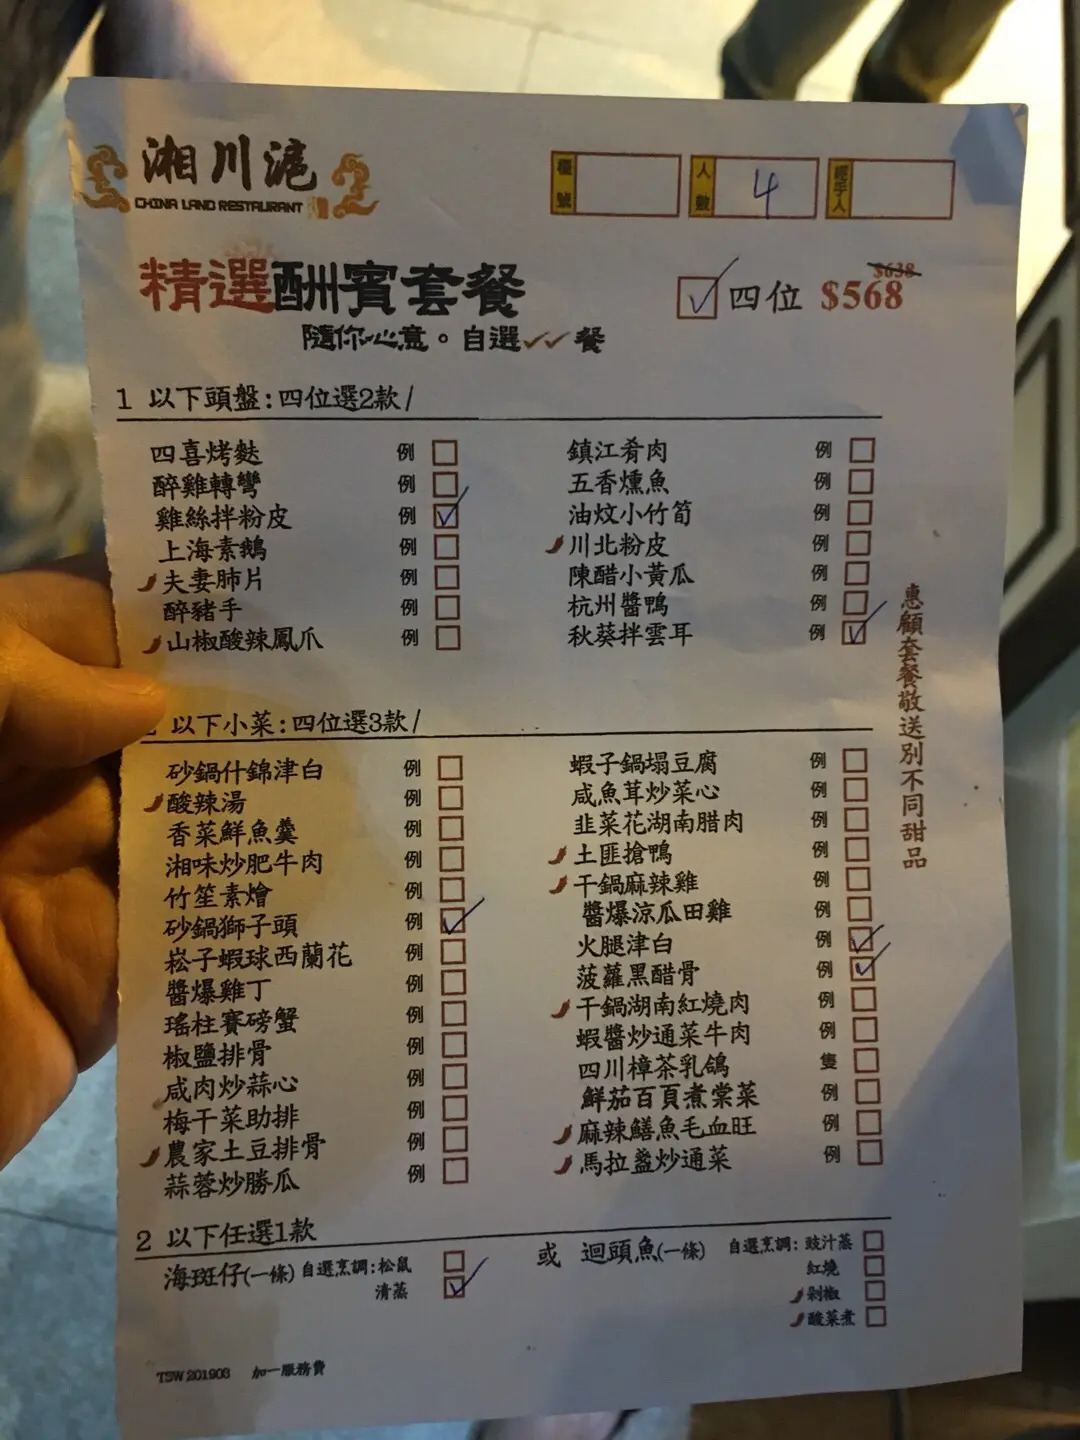 湘川滬
CHINA LAND RESTAURANT
檯號
人數 4
經手人
精選酬賓套餐
四位 $638 $568
隨你心意。自選✓✓餐
1 以下頭盤:四位選2款/
四喜烤麩 例
醉雞轉彎 例
雞絲拌粉皮 例 ✓
上海素鵝 例
夫妻肺片 例
醉豬手 例
山椒酸辣鳳爪 例
鎮江肴肉 例
五香燻魚 例
油炆小竹筍 例
川北粉皮 例
陳醋小黃瓜 例
杭州醬鴨 例
秋葵拌雲耳 例 ✓
惠顧套餐敬送別不同甜品
以下小菜:四位選3款/
砂鍋什錦津白 例
酸辣湯 例
香菜鮮魚羹 例
湘味炒肥牛肉 例
竹笙素燴 例
砂鍋獅子頭 例 ✓
崧子蝦球西蘭花 例
醬爆雞丁 例
瑤柱賽磅蟹 例
椒鹽排骨 例
咸肉炒蒜心 例
梅干菜助排 例
農家土豆排骨 例
蒜蓉炒勝瓜 例
蝦子鍋塌豆腐 例
咸魚茸炒菜心 例
韭菜花湖南腊肉 例
土匪搶鴨 例
干鍋麻辣雞 例
醬爆涼瓜田雞 例
火腿津白 例 ✓
菠蘿黑醋骨 例 ✓
干鍋湖南紅燒肉 例
蝦醬炒通菜牛肉 例
四川樟茶乳鴿 隻
鮮茄百頁煮棠菜 例
麻辣鱔魚毛血旺 例
馬拉盞炒通菜 例
2 以下任選1款
海斑仔(一條) 自選烹調:松鼠
清蒸 ✓
或 迴頭魚(一條) 自選烹調:豉汁蒸
紅燒
剁椒
酸菜煮
TSW 201903 加一服務費